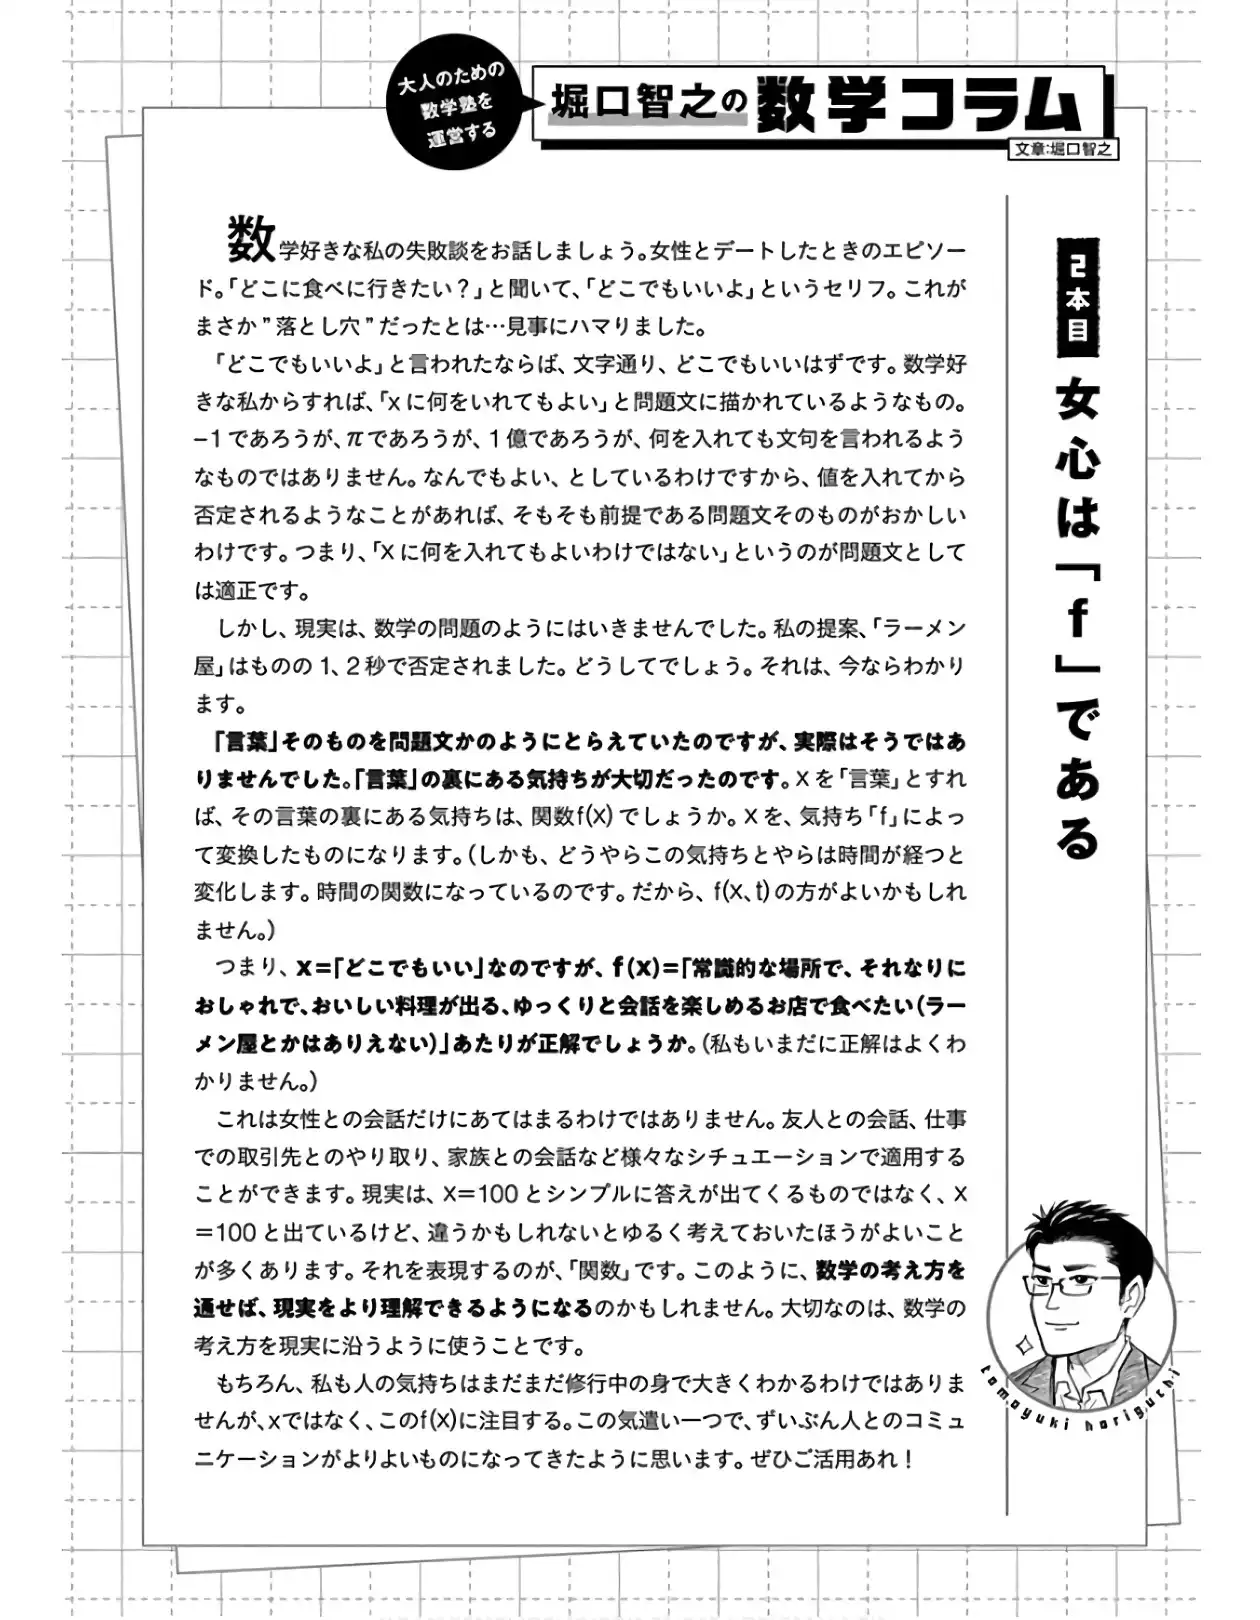 大人のための
数学塾を
運営する
堀口智之の数学コラム
文章:堀口智之
2本目 女心は「f」である
数学好きな私の失敗談をお話しましょう。女性とデートしたときのエピソー
ド。「どこに食べに行きたい？」と聞いて、「どこでもいいよ」というセリフ。これが
まさか”落とし穴”だったとは…見事にハマりました。
「どこでもいいよ」と言われたならば、文字通り、どこでもいいはずです。数学好
きな私からすれば、「xに何をいれてもよい」と問題文に描かれているようなもの。
−1であろうが、πであろうが、1億であろうが、何を入れても文句を言われるよう
なものではありません。なんでもよい、としているわけですから、値を入れてから
否定されるようなことがあれば、そもそも前提である問題文そのものがおかしい
わけです。つまり、「xに何を入れてもよいわけではない」というのが問題文として
は適正です。
しかし、現実は、数学の問題のようにはいきませんでした。私の提案、「ラーメン
屋」はものの1、2秒で否定されました。どうしてでしょう。それは、今ならわかり
ます。
「言葉」そのものを問題文かのようにとらえていたのですが、実際はそうではあ
りませんでした。「言葉」の裏にある気持ちが大切だったのです。xを「言葉」とすれ
ば、その言葉の裏にある気持ちは、関数f(x)でしょうか。xを、気持ち「f」によっ
て変換したものになります。（しかも、どうやらこの気持ちとやらは時間が経つと
変化します。時間の関数になっているのです。だから、f(x、t)の方がよいかもしれ
ません。）
つまり、x＝「どこでもいい」なのですが、f(x)＝「常識的な場所で、それなりに
おしゃれで、おいしい料理が出る、ゆっくりと会話を楽しめるお店で食べたい（ラー
メン屋とかはありえない）」あたりが正解でしょうか。（私もいまだに正解はよくわ
かりません。）
これは女性との会話だけにあてはまるわけではありません。友人との会話、仕事
での取引先とのやり取り、家族との会話など様々なシチュエーションで適用する
ことができます。現実は、x＝100とシンプルに答えが出てくるものではなく、x
＝100と出ているけど、違うかもしれないとゆるく考えておいたほうがよいこと
が多くあります。それを表現するのが、「関数」です。このように、数学の考え方を
通せば、現実をより理解できるようになるのかもしれません。大切なのは、数学の
考え方を現実に沿うように使うことです。
もちろん、私も人の気持ちはまだまだ修行中の身で大きくわかるわけではありま
せんが、xではなく、このf(x)に注目する。この気遣い一つで、ずいぶん人とのコミュ
ニケーションがよりよいものになってきたように思います。ぜひご活用あれ！
tomoyuki horiguchi